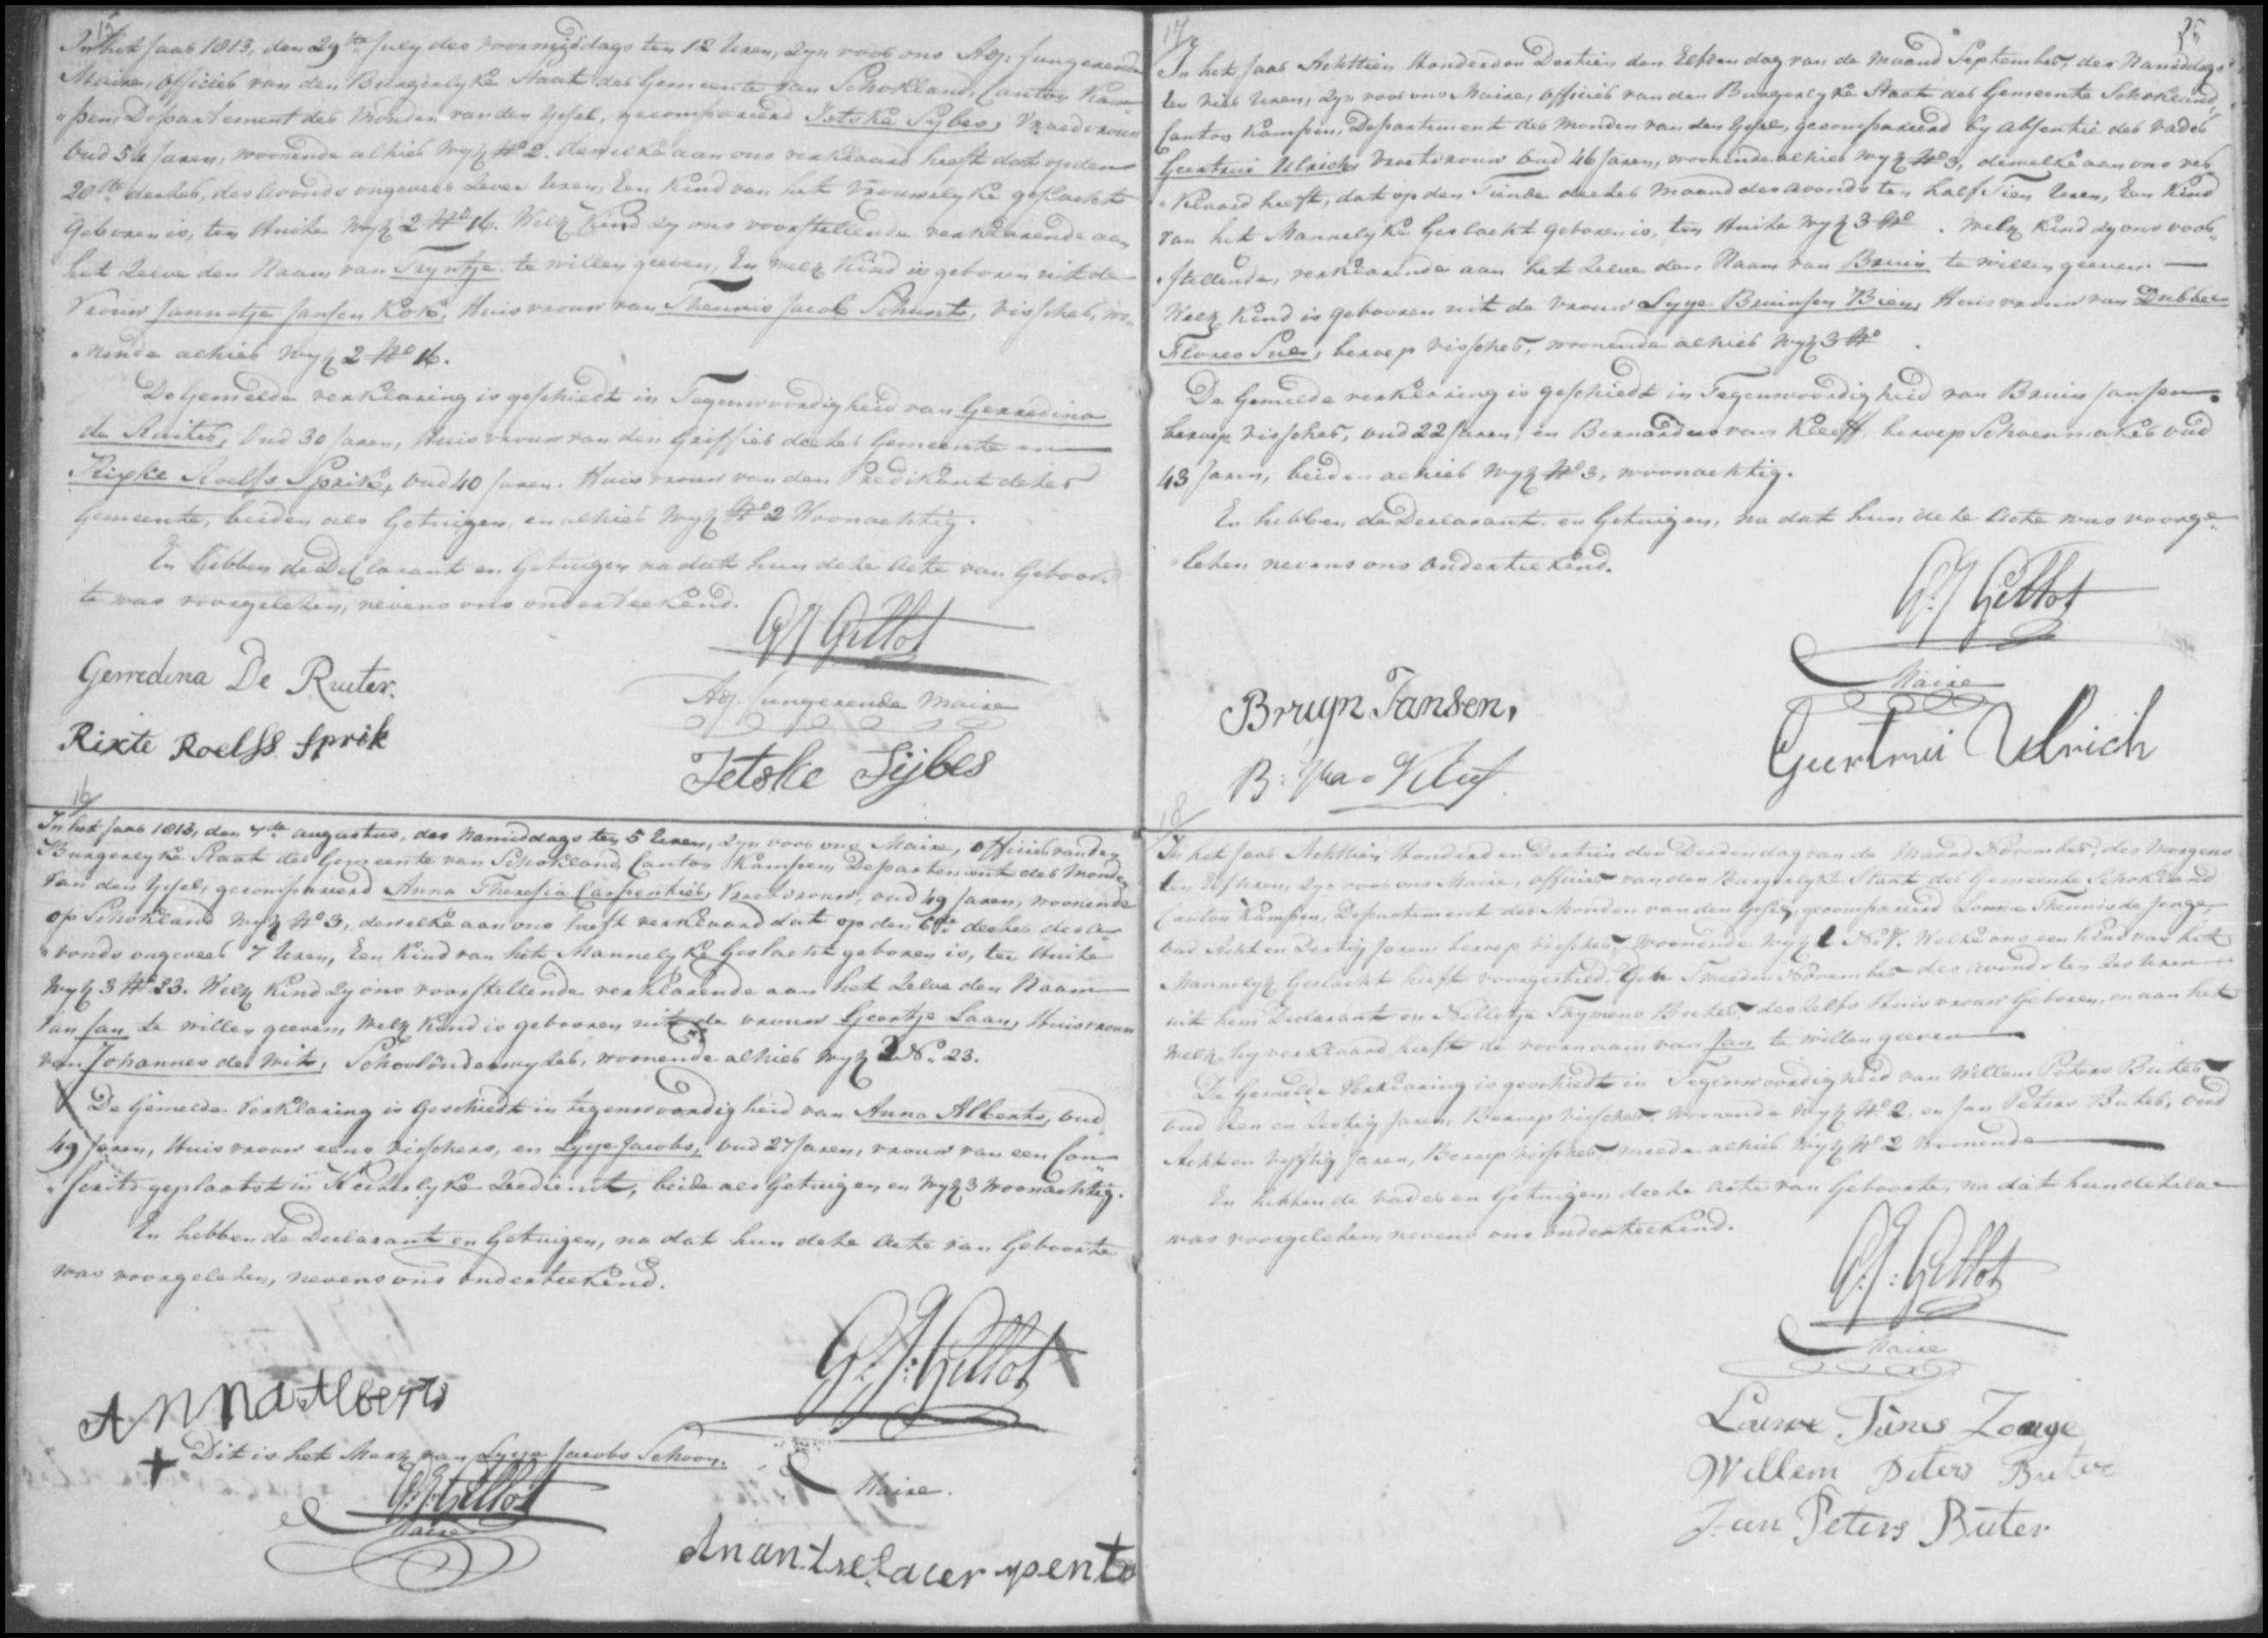 15
In het Jaar 1813, den 29ste July des voormiddags ten 12 Uren, Zyn voor ons Adj: fungerende
Maire, Officier van den Burgerlyke Staat der Gemeente van Schokland, Canton Kam-
"pen, Departement der Monden van den Yssel, gecompareerd Jetske Sybes, Vroedvrouw
Oud 54 Jaren, woonende alhier Wyk No 2. dewelke aan ons verklaard heeft dat op den
20ste deezer, des avonds ongeveer Zeven Uren, Een Kind van het Vrouwelyke geslacht
Geboren is, ten Huize Wyk 2 No 16. Welk Kind zy ons voorstellende verklarende aan
het Zelve den Naam van Tryntje te willen geeven, En welk Kind is geboren uit de
Vrouw Jannetje Jansen Kok, Huisvrouw van Theunis Jacob Schunt, visscher, wo-
"nende alhier Wyk 2 No 16.
De Gemelde verklaring is geschiedt in Tegenwoordigheid van Gerredina
de Ruiter, Oud 30 Jaren, Huisvrouw van den Griffier deezer Gemeente en
Rixte Roelfs Sprik, oud 40 Jaren. Huisvrouw van den Predikant dezer
Gemeente, beiden als Getuigen, en alhier Wyk No 2 Woonachtig.
En hebben de Declarant en Getuigen na dat hun deze Acte van Geboor-
te was voorgelezen, nevens ons onderteekend.
GJ Gillot
Adj. fungerende Maire
Gerredina De Ruiter.
Rixte Roelfs Sprik
Jetske Sijbes
16
In het Jaar 1813, den 7de augustus, des Namiddags ten 5 Uren, Zyn voor ons Maire, Officier van den
Burgerlyke Staat der Gemeente van Schokland, Canton Kampen, Departement der Monden
van den Yssel, gecompareerd Anna Theresia Carpentier, Vroedvrouw, oud 49 Jaren, woonende
op Schokland Wyk No 3, dewelke aan ons heeft verklaard dat op den 6de deezer des a-
"vonds ongeveer 7 Uren, Een Kind van het Mannelyke Geslacht geboren is, ten Huize
Wyk 3 No 23. Welk Kind Zy ons voorstellende verklarende aan het Zelve den Naam
van Jan te willen geeven, Welk Kind is gebooren uit de vrouw Geertje Laan, Huisvrouw
van Johannes de Wit, Schoolonderwyzer, woonende alhier Wyk 3 No. 23.
De Gemelde Verklaring is Geschiedt in tegenwoordigheid van Anna Alberts, Oud
49 Jaren, Huisvrouw eens visschers, en Lyye Jacobs, oud 27 Jaren, vrouw van een Con-
"scrits geplaatst in Keizerlyke Zeedienst, beide als Getuigen, en Wyk 3 woonachtig.
En hebben de Declarant en Getuigen, na dat hun deze Acte van Geboorte
was voorgelezen, nevens ons onderteekend.
G: J: Gillot
Maire.
Anna Alberts
+ Dit is het Merk van Lyye Jacobs Schoon.
G: J: Gillot
Maire
17
In het Jaar Achttien Honderd en Dertien den Elfden dag van de Maand September, des Namiddags
ten vier Uren, Zyn voor ons Maire, Officier van den Burgerlyke Staat der Gemeente Schokland,
Canton Kampen, Departement der Monden van den Yssel, gecompareerd by absentie der vader
Geertrui Ulrich, Vroedvrouw Oud 46 Jaren, woonende alhier Wyk No 3, dewelke aan ons ver-
"klaard heeft, dat op den Tiende deezer maand des avonds ten half Tien Uren, Een Kind
van het Mannelyke Geslacht geboren is, ten Huize Wyk 3 No . Welk Kind Zy ons voor-
"stellende, verklarende aan het Zelve den Naam van Bruin te willen geeven. —
Welk Kind is gebooren uit de vrouw Lyye Bruinsen Bien, Huisvrouw van Dubbel
Flores Sul, beroep visscher, woonende alhier Wyk 3 No .
De Gemelde verklaring is geschiedt in Tegenwoordigheid van Bruin Jansen
beroep visscher, oud 22 Jaren, en Bernardus van Kleeff beroep Schoenmaker oud
43 Jaren, beiden alhier Wyk No 3, woonachtig.
En hebben de Declarant en Getuigen, na dat hun deze Acte was voorge-
"lezen nevens ons onderteekend.
G: J Gillot
Maire
Bruyn Jansen,
Geertrui Ulrich
18
In het Jaar Achttien Honderd en Dertien den Derden dag van de Maand November, des Morgens
ten Elf Uren, Zyn voor ons Maire, Officier van den Burgerlyke Staat der Gemeente Schokland
Canton Kampen, Departement der Monden van den Yssel, gecompareerd Louwe Theunis de Jonge,
oud Acht en Dertig Jaren beroep visscher, woonende Wyk 1 No 7. Welke ons een Kind van het
Mannelyk Geslacht heeft voorgesteld, den Tweeden November des avonds ten Zes Uren
uit hem Declarant en Nelletje Thymens Buter, deszelfs Huisvrouw Geboren, en aan het
welk hy verklaard heeft de voornaam van Jan te willen geeven
De Gemelde Verklaring is geschiedt in Tegenwoordigheid van Willem Peters Buter
oud Een en Zestig Jaren, Beroep visscher, woonende Wyk No. 2, en Jan Peters Buter, oud
Acht en Vyftig Jaren, Beroep visscher, meede alhier Wyk No 2 woonende
En hebben de vader en Getuigen deeze Acte van Geboorte, na dat hun dezelve
was voorgelezen, nevens ons onderteekend.
G: J: Gillot
Maire
Louwe Tünes Zonge
Willem Peters Buter
Jan Peters Buter